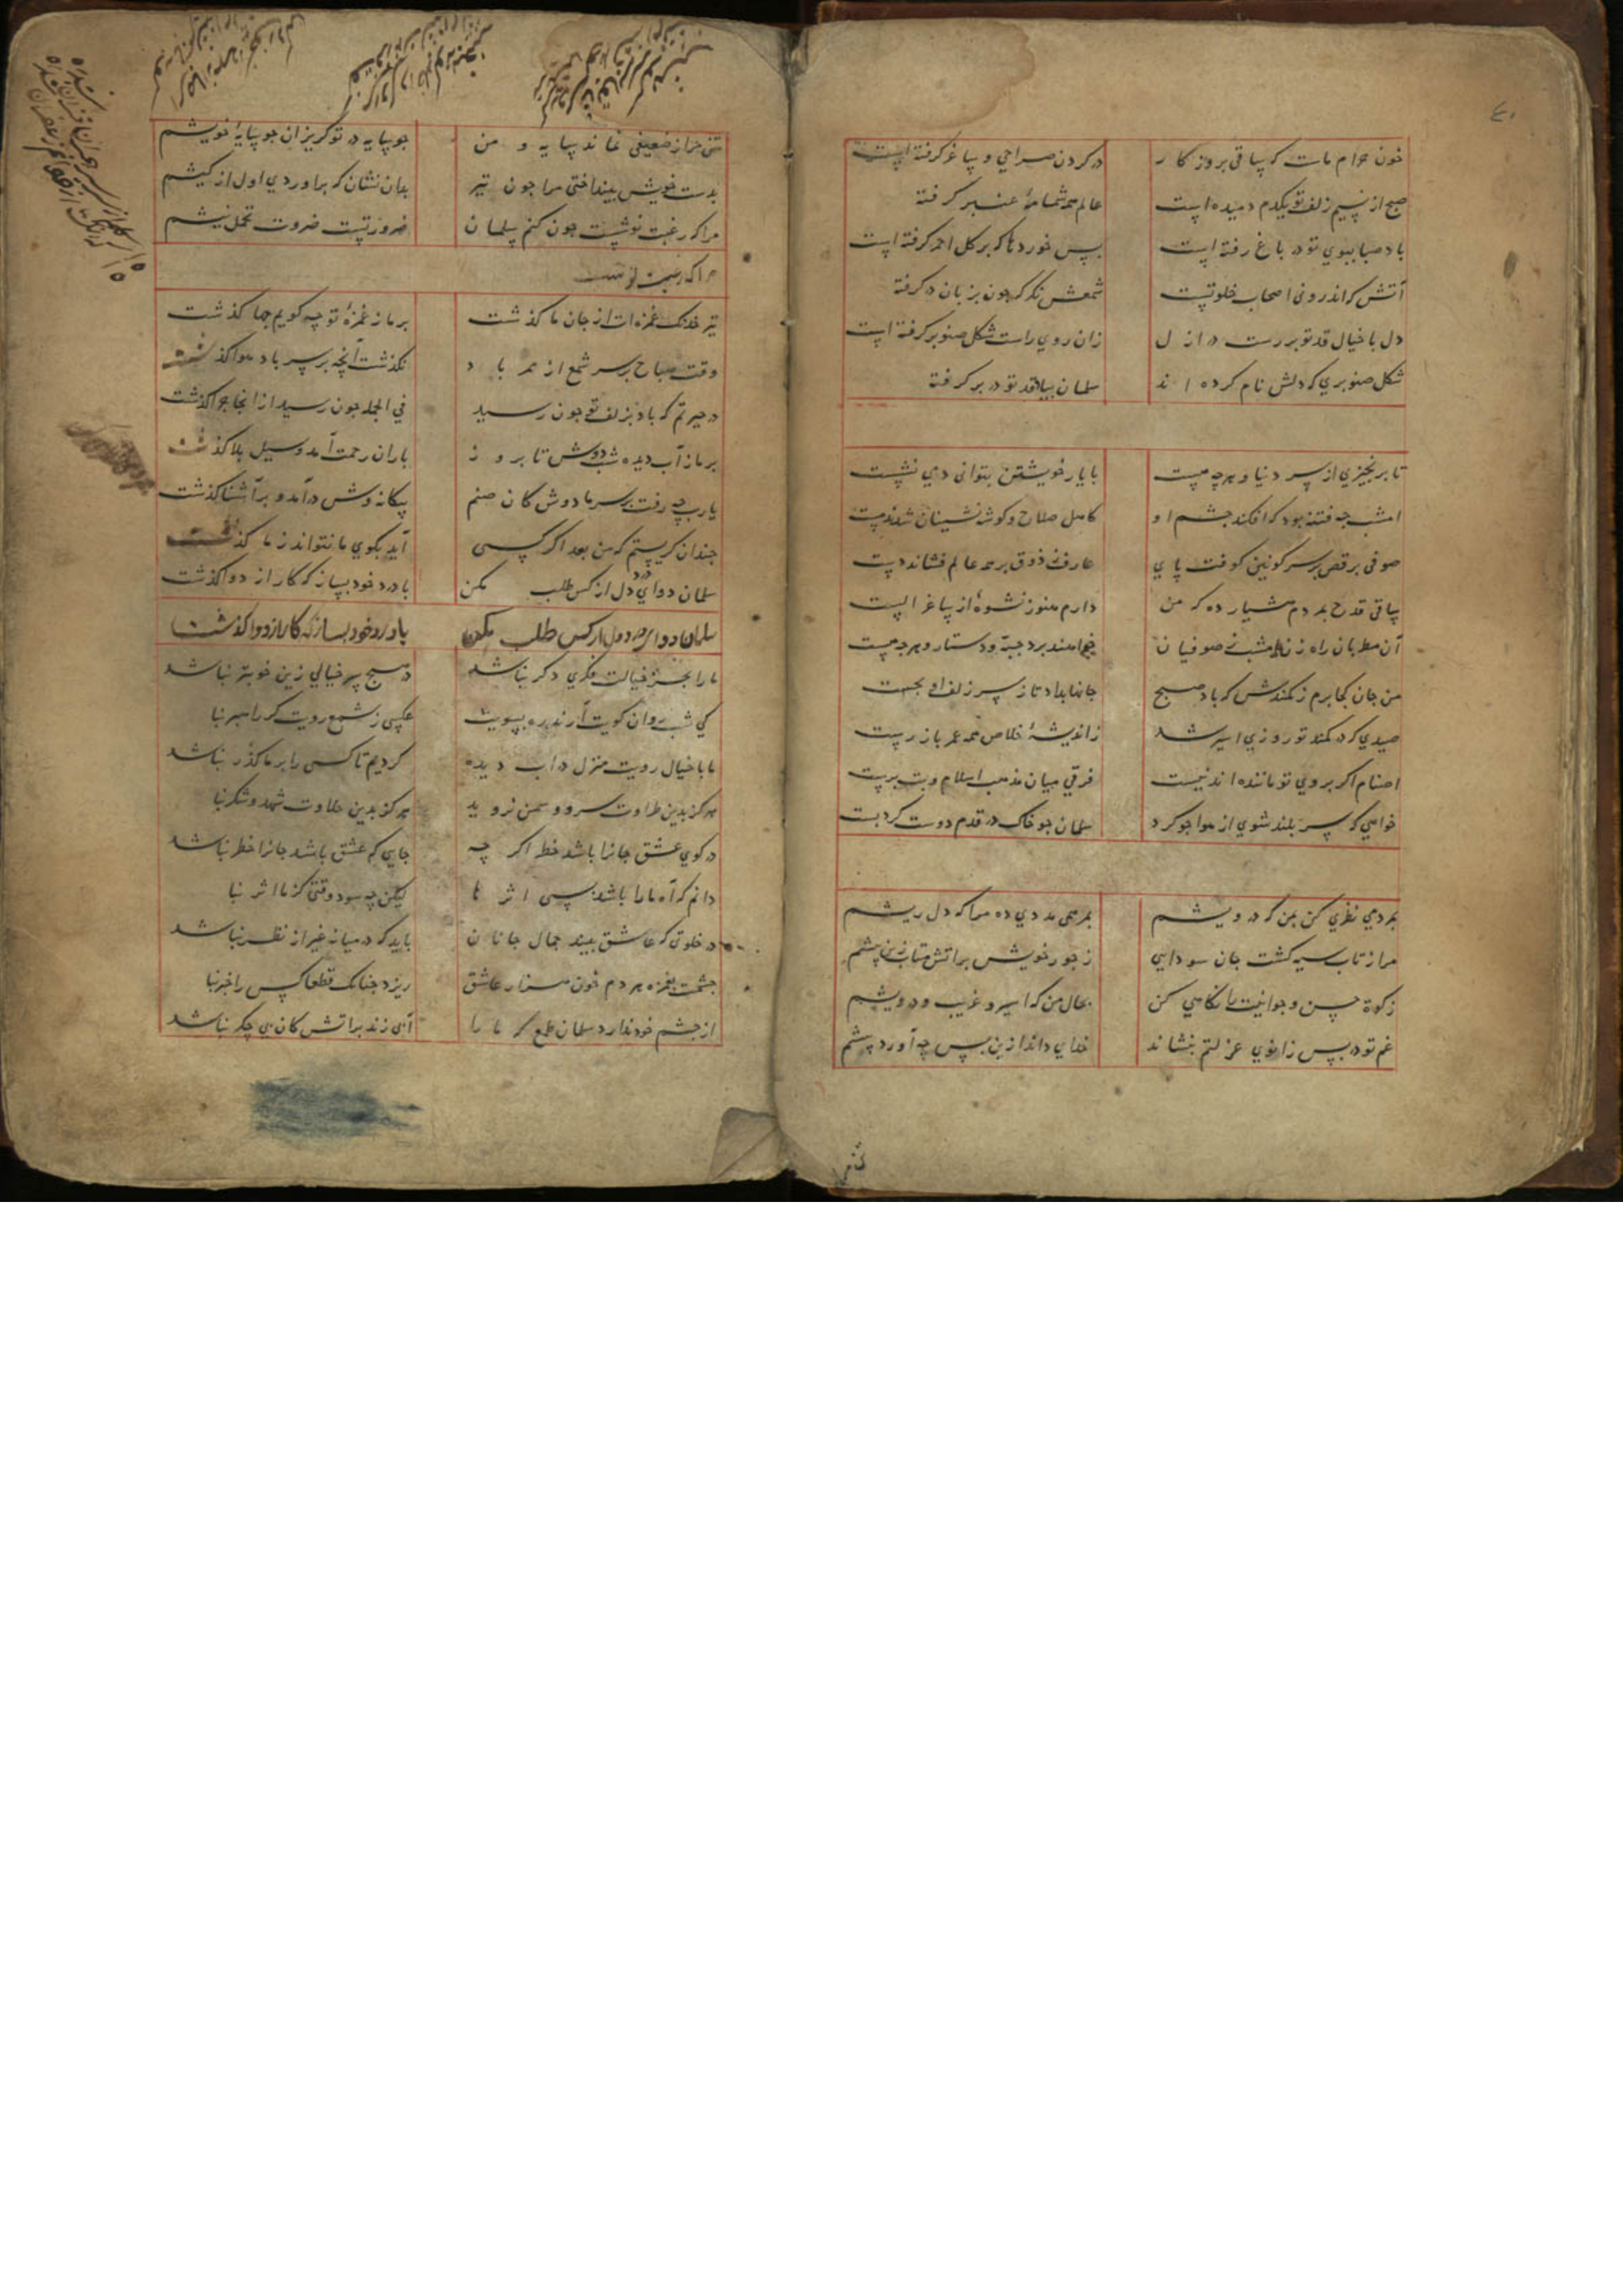 ٤٠
خون حرام ماست که ساقی بروز کار در کردن صراحی و ساغر کرفته است
صبح از نسیم زلف تو یکدم دمیده است عالم همه شمامهٔ عنبر کرفته
باد صبا ببوی تو در باغ رفته است بس خوردها که بر کل احمر کرفته است
آتش که اندرونی اصحاب خلوتست شمعش نکر که چون بزبان در کرفته
دل با خیال قد تو بر رست در ازل زان روی راست شکل صنوبر کرفته است
شکل صنوبری که دلش نام کرده اند سلمان بیاد قد تو در بر کرفته
تا بر نخیزی از سر دنیا و هر چه هست با یار خویشتن بتوانی دمی نشست
امشب چه فتنه بود که افکند چشم او کاهل صلاح و کوشه نشینان شدند مست
صوفی برقص بر سر کونین کوفت پای عارف ز ذوق بر همه عالم فشاند دست
ساقی قدح بمردم هشیار ده که من دارم هنوز نشوهٔ از ساغر الست
آن مطربان راه زن امشب ز صوفیان خواهند برد جبه و دستار و هر چه هست
من جان کجا برم ز کمندش که باد صبح جانها بداد تا ز سر زلف او بجست
صیدی که در کمند تو روزی اسیر شد ز اندیشهٔ خلاص همه عمر باز رست
اصنام اکر بروی تو ماننده اند نیست فرقی میان مذهب اسلام و بت پرست
خواهی که سر بلند شوی از هوا چو کرد سلمان چو خاک در قدم دوست کرد بست
بمردمی نظری کن بمن که درویشم بمرهمی مددی ده مرا که دل ریشم
مرا ز تاب سیه کشت جان سودایی ز جور خویش بر آتش متاب ازین بیشم
زکوة حسن و جوانیت را نکاهی کن بحال من که اسیر و غریب و درویشم
غم تو در پس زانوی عزلتم بنشاند خدای داند ازین پس چه آورد پیشم
تنی
تنی مرا ز ضعیفی نماند سایه و من چو سایه در تو کریزان چو سایهٔ خویشم
بدست خویش بینداختی مرا چون تیر بدان نشان که بر آوردی اول از کیشم
مرا که رغبت نوشست چون کنم سلمان ضرورتست ضرورت تحمل نیشم
مرا که رغبت نوشست
تیر خدنک غمزه ات از جان ما کذشت بر ما ز غمزهٔ تو چه کویم چها کذشت
وقت صباح بر سر شمع از ممر باد نکذشت آنچه بر سر باد هوا کذشت
در حیرتم که باد بزلف تو چون رسید فی الجمله چون رسید از انجا چرا کذشت
بر ما ز آب دیده شب دوش تا بروز باران رحمت آمد و سیل بلا کذشت
یارب چه رفت بر سر ما دوش کان صنم بیکانه وش در آمد و بر آشنا کذشت
چندان کریستم که من بعد اکر کسی آید بکوی ما نتواند ز ما کذشت
سلمان دوای درد دل از کس طلب مکن با درد خود بساز که کار از دوا کذشت
سلمان دوای درد دل از کس طلب مکن با درد خود بساز که کار از دوا کذشت
ما را بجز خیالت فکری دکر نباشد در هیچ سر خیالی زین خوبتر نباشد
کی شب روان کویت آرند ره بسویت عکسی ز شمع رویت کر راهبر نبا
ما با خیال رویت منزل در آب دیده کردیم تا کسی را بر ما کذر نباشد
هرکز بدین طراوت سرو و سمن نروید هرکز بدین حلاوت شهد و شکر نبا
در کوی عشق جانرا باشد خطر اکر چه جایی که عشق باشد جانرا خطر نباشد
دانم که آه ما را باشد بسی اثرها لیکن چه سود وقتی کز ما اثر نبا
در خلوتی که عاشق بیند جمال جانان باید که در میانه غیر از نظر نباشد
چشمت بغمزه هر دم خون هزار عاشق ریزد چنانک قطعا کس را خبر نبا
از چشم خود ندارد سلمان طمع که ما را آبی زند بر آتش کان بی جکر نباشد